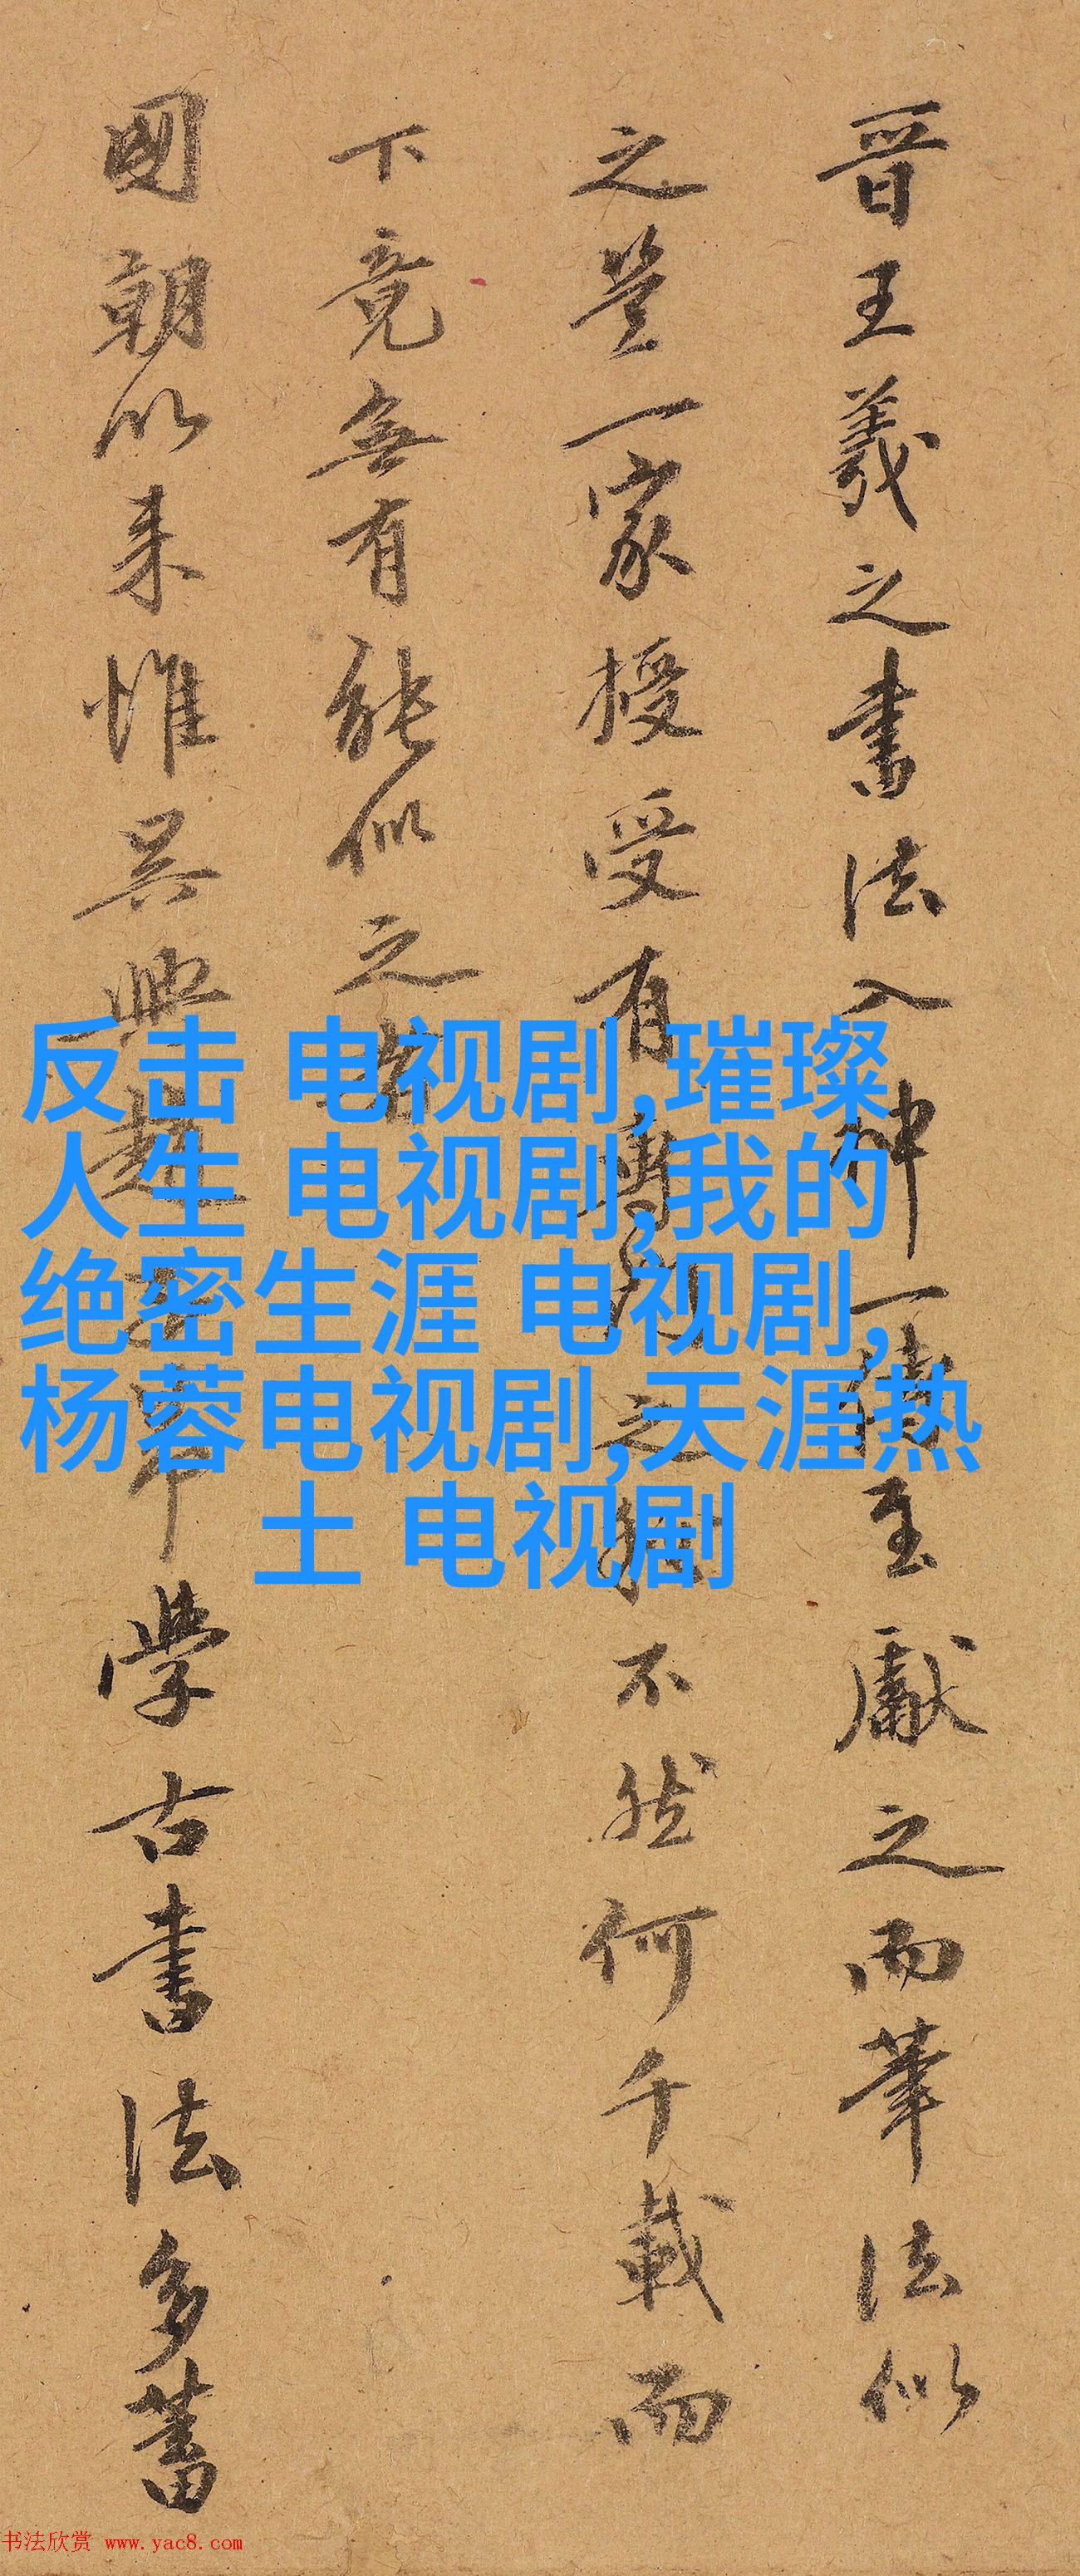 晋王羲之書法入神一傳至獻之而筆法似
之豈一家授受有專門之不然何千載而
下竟無有能似之者
國朝以来惟吴興趙學古書法多蓄
反击 电视剧,璀璨
人生 电视剧,我的
绝密生涯 电视剧,
杨蓉电视剧,天涯热
土 电视剧
书法欣赏 www.yac8.com